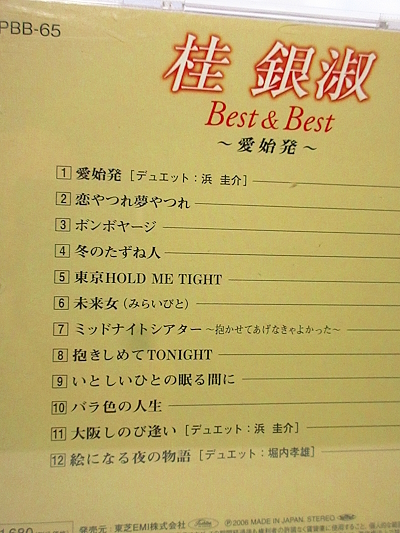 PBB-65
桂 銀淑
Best & Best
～愛始発～
1 愛始発 [デュエット：浜 圭介]
2 恋やつれ夢やつれ
3 ボンボヤージ
4 冬のたずね人
5 東京HOLD ME TIGHT
6 未来女（みらいびと）
7 ミッドナイトシアター ～抱かせてあげなきゃよかった～
8 抱きしめてTONIGHT
9 いとしいひとの眠る間に
10 バラ色の人生
11 大阪しのび逢い [デュエット：浜 圭介]
12 絵になる夜の物語 [デュエット：堀内孝雄]
発売元：東芝EMI株式会社 Ⓟ2006 MADE IN JAPAN. STEREO